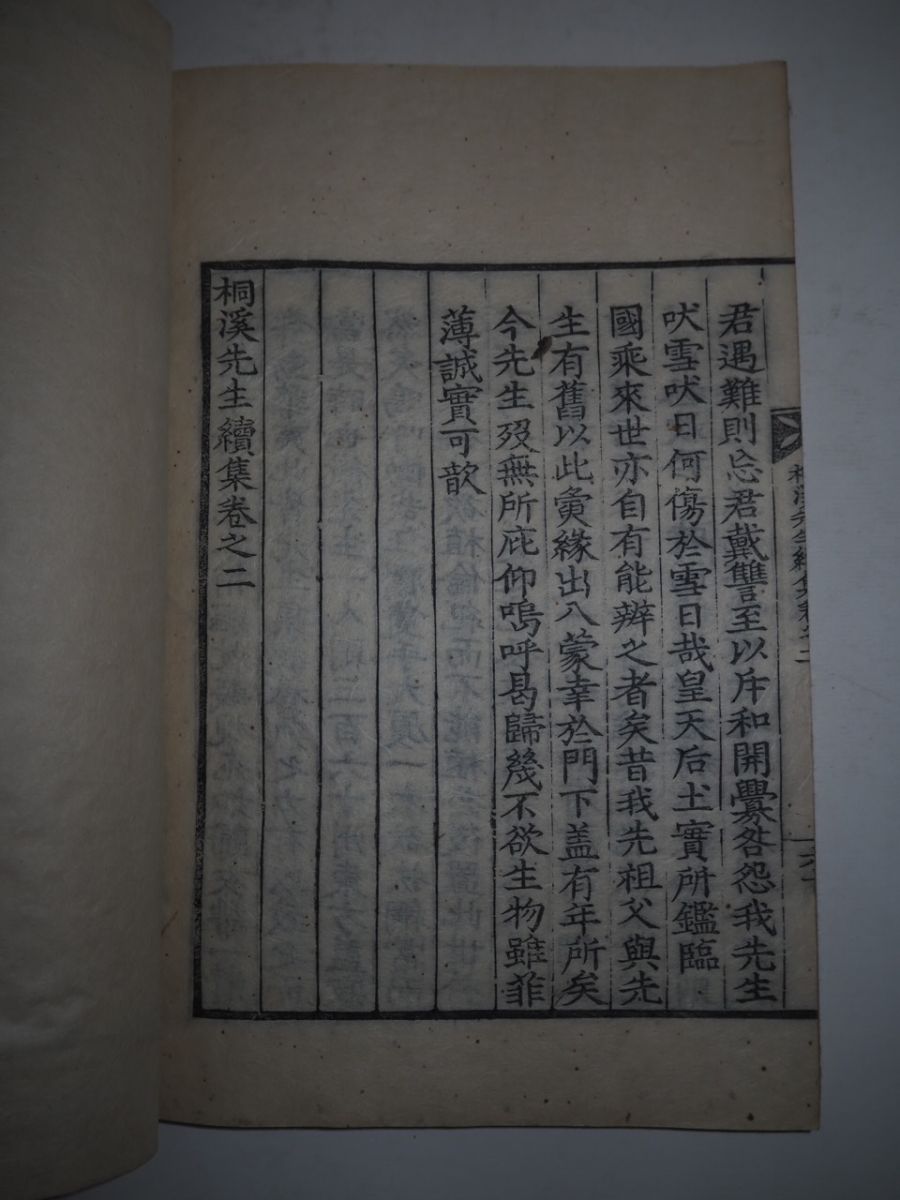 君遇難則忘君戴讐至以斥和開釁咎怨我先生
吠雪吠日何傷於雪日哉皇天后土實所鑑臨
國乘來世亦自有能辨之者矣昔我先祖父與先
生有舊以此夤緣出入蒙幸於門下盖有年所矣
今先生歿無所庇仰嗚呼曷歸幾不欲生物雖菲
薄誠實可歆
桐溪先生續集卷之二
桐溪先生續集卷之二